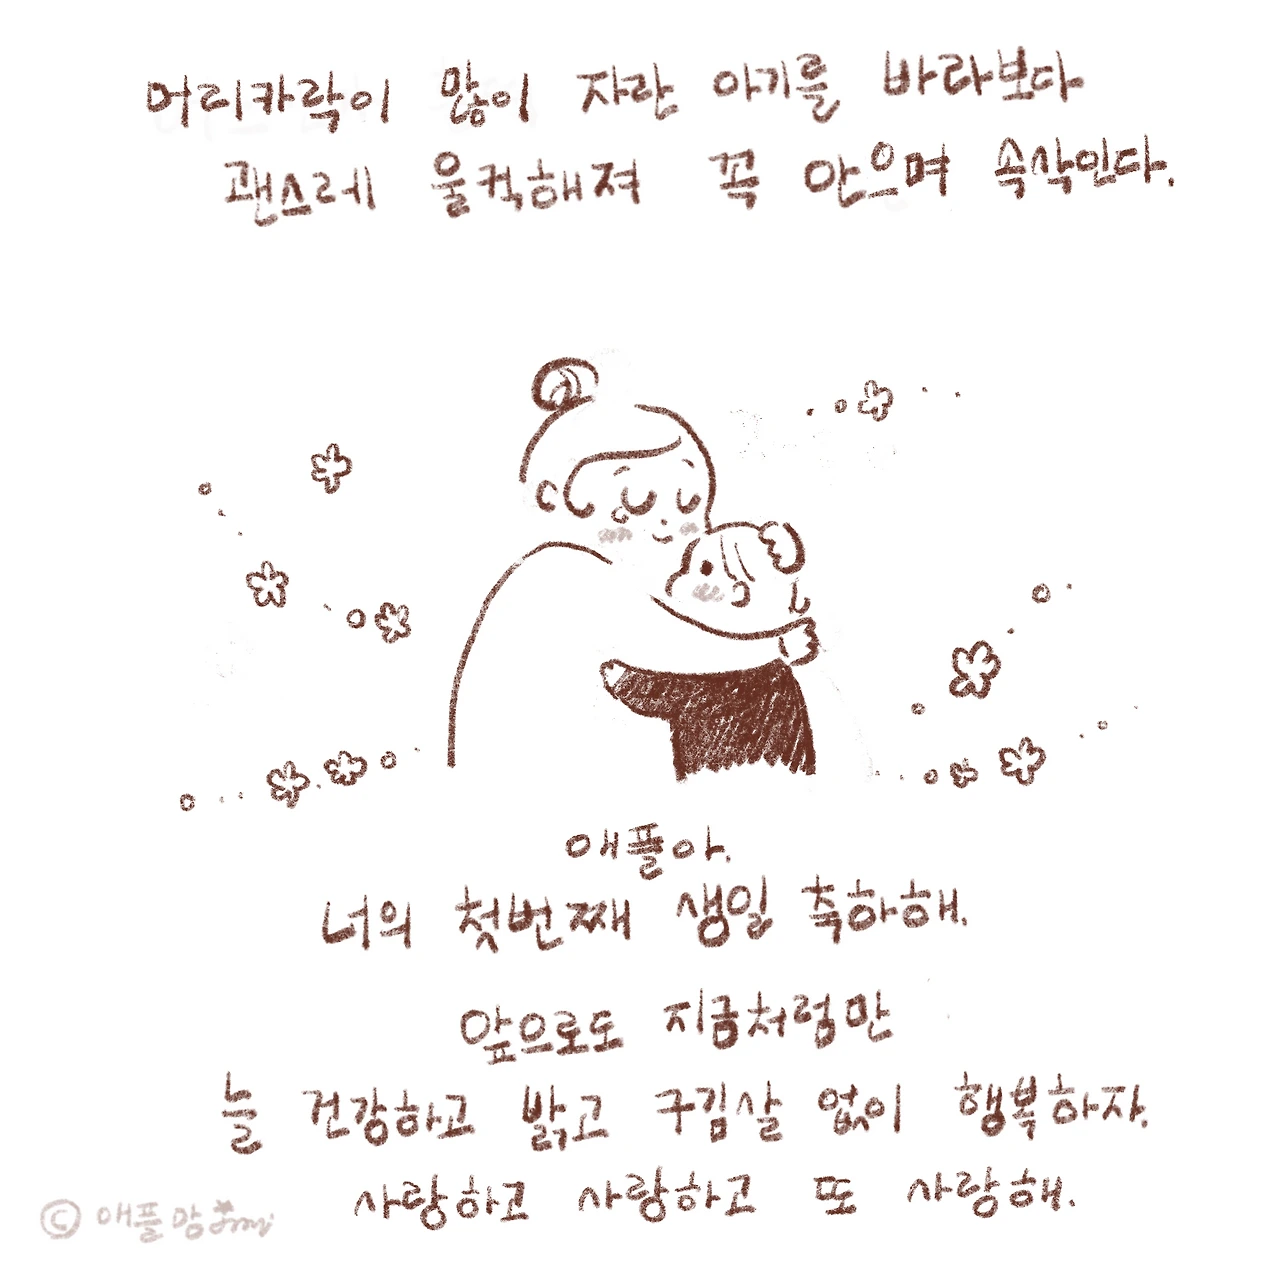 머리카락이 많이 자란 아기를 바라보다
괜스레 울컥해져 꼭 안으며 속삭인다.
애플아.
너의 첫번째 생일 축하해.
앞으로도 지금처럼만
늘 건강하고 밝고 구김살 없이 행복하자.
사랑하고 사랑하고 또 사랑해.
© 애플맘